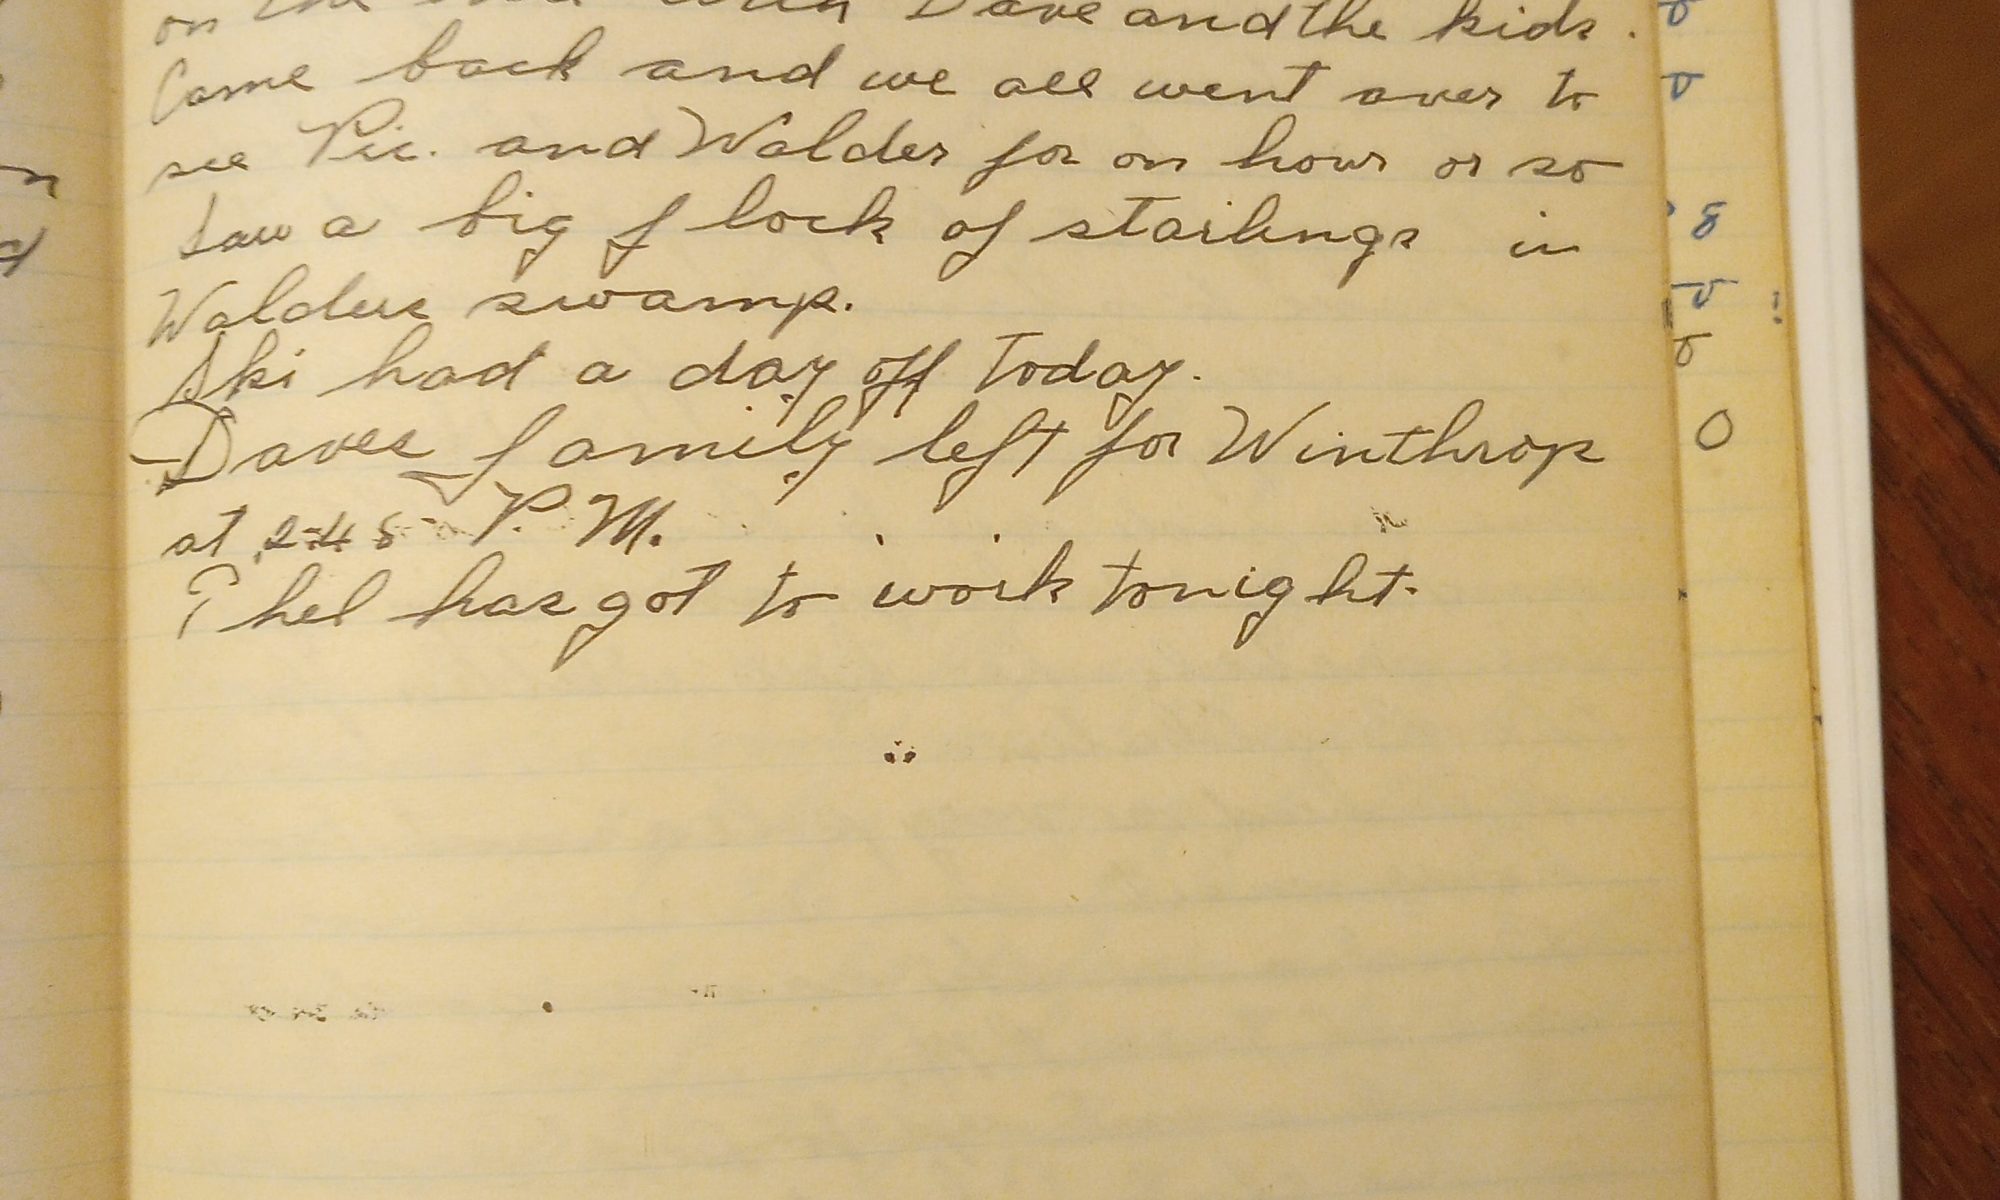 on the with Dave and the kids.
Came back and we all went over to
see Pic. and Walder for an hour or so
Saw a big flock of starlings in
Walders swamp.
Ski had a day off today.
Daves family left for Winthrop
at 2-45 P.M.
Phel has got to work tonight.